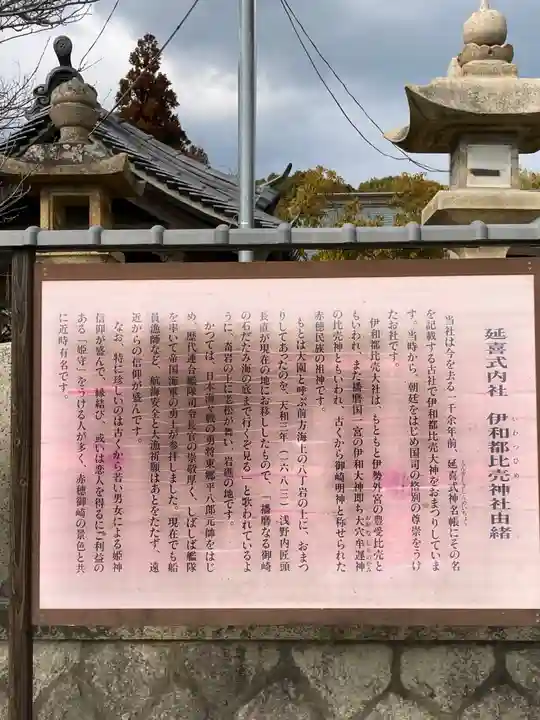 延喜式内社　伊和都比売神社由緒
いわつひめ
当社は今を去る一千余年前、延喜式神名帳にその名
えんぎしきじんみょうちょう
を記載する古社で伊和都比売大神をおまつりしていま
す。当時から、朝廷をはじめ国司の格別の尊崇をうけ
たお社です。
伊和都比売大社は、もともと伊勢外宮の豊受比売と
もいわれ、また播磨国一宮の伊和大神即ち大穴牟遅神
おおなむちのかみ
の比売神ともいわれ、古くから御崎明神と称せられた
赤穂民族の祖神です。
もとは大園と呼ぶ前方海上の八丁岩の上に、おまつ
りしてあったのを、天和三年（一六八三）浅野内匠頭
長直が現在の地にお移ししたもので、「播磨なる御崎
の石だたみ海の底まで行くを見る」と歌われているよ
うに、奇岩の上に老松が舞い、岩礁の地です。
かつては、日本海々戦の勇将東郷平八郎元帥をはじ
め、歴代連合艦隊司令長官の崇敬厚く、しばしば艦隊
を率いて帝国海軍の勇士が参拝しました。現在でも船
員漁師など、航海安全と大漁祈願はあとをたたず、遠
近からの信仰が盛んです。
なお、特に珍しいのは古くから若い男女による姫神
信仰が盛んで、縁結び、或いは恋人を得るにご利益の
ある「姫守」をうける人が多く、赤穂御崎の景色と共
に近時有名です。